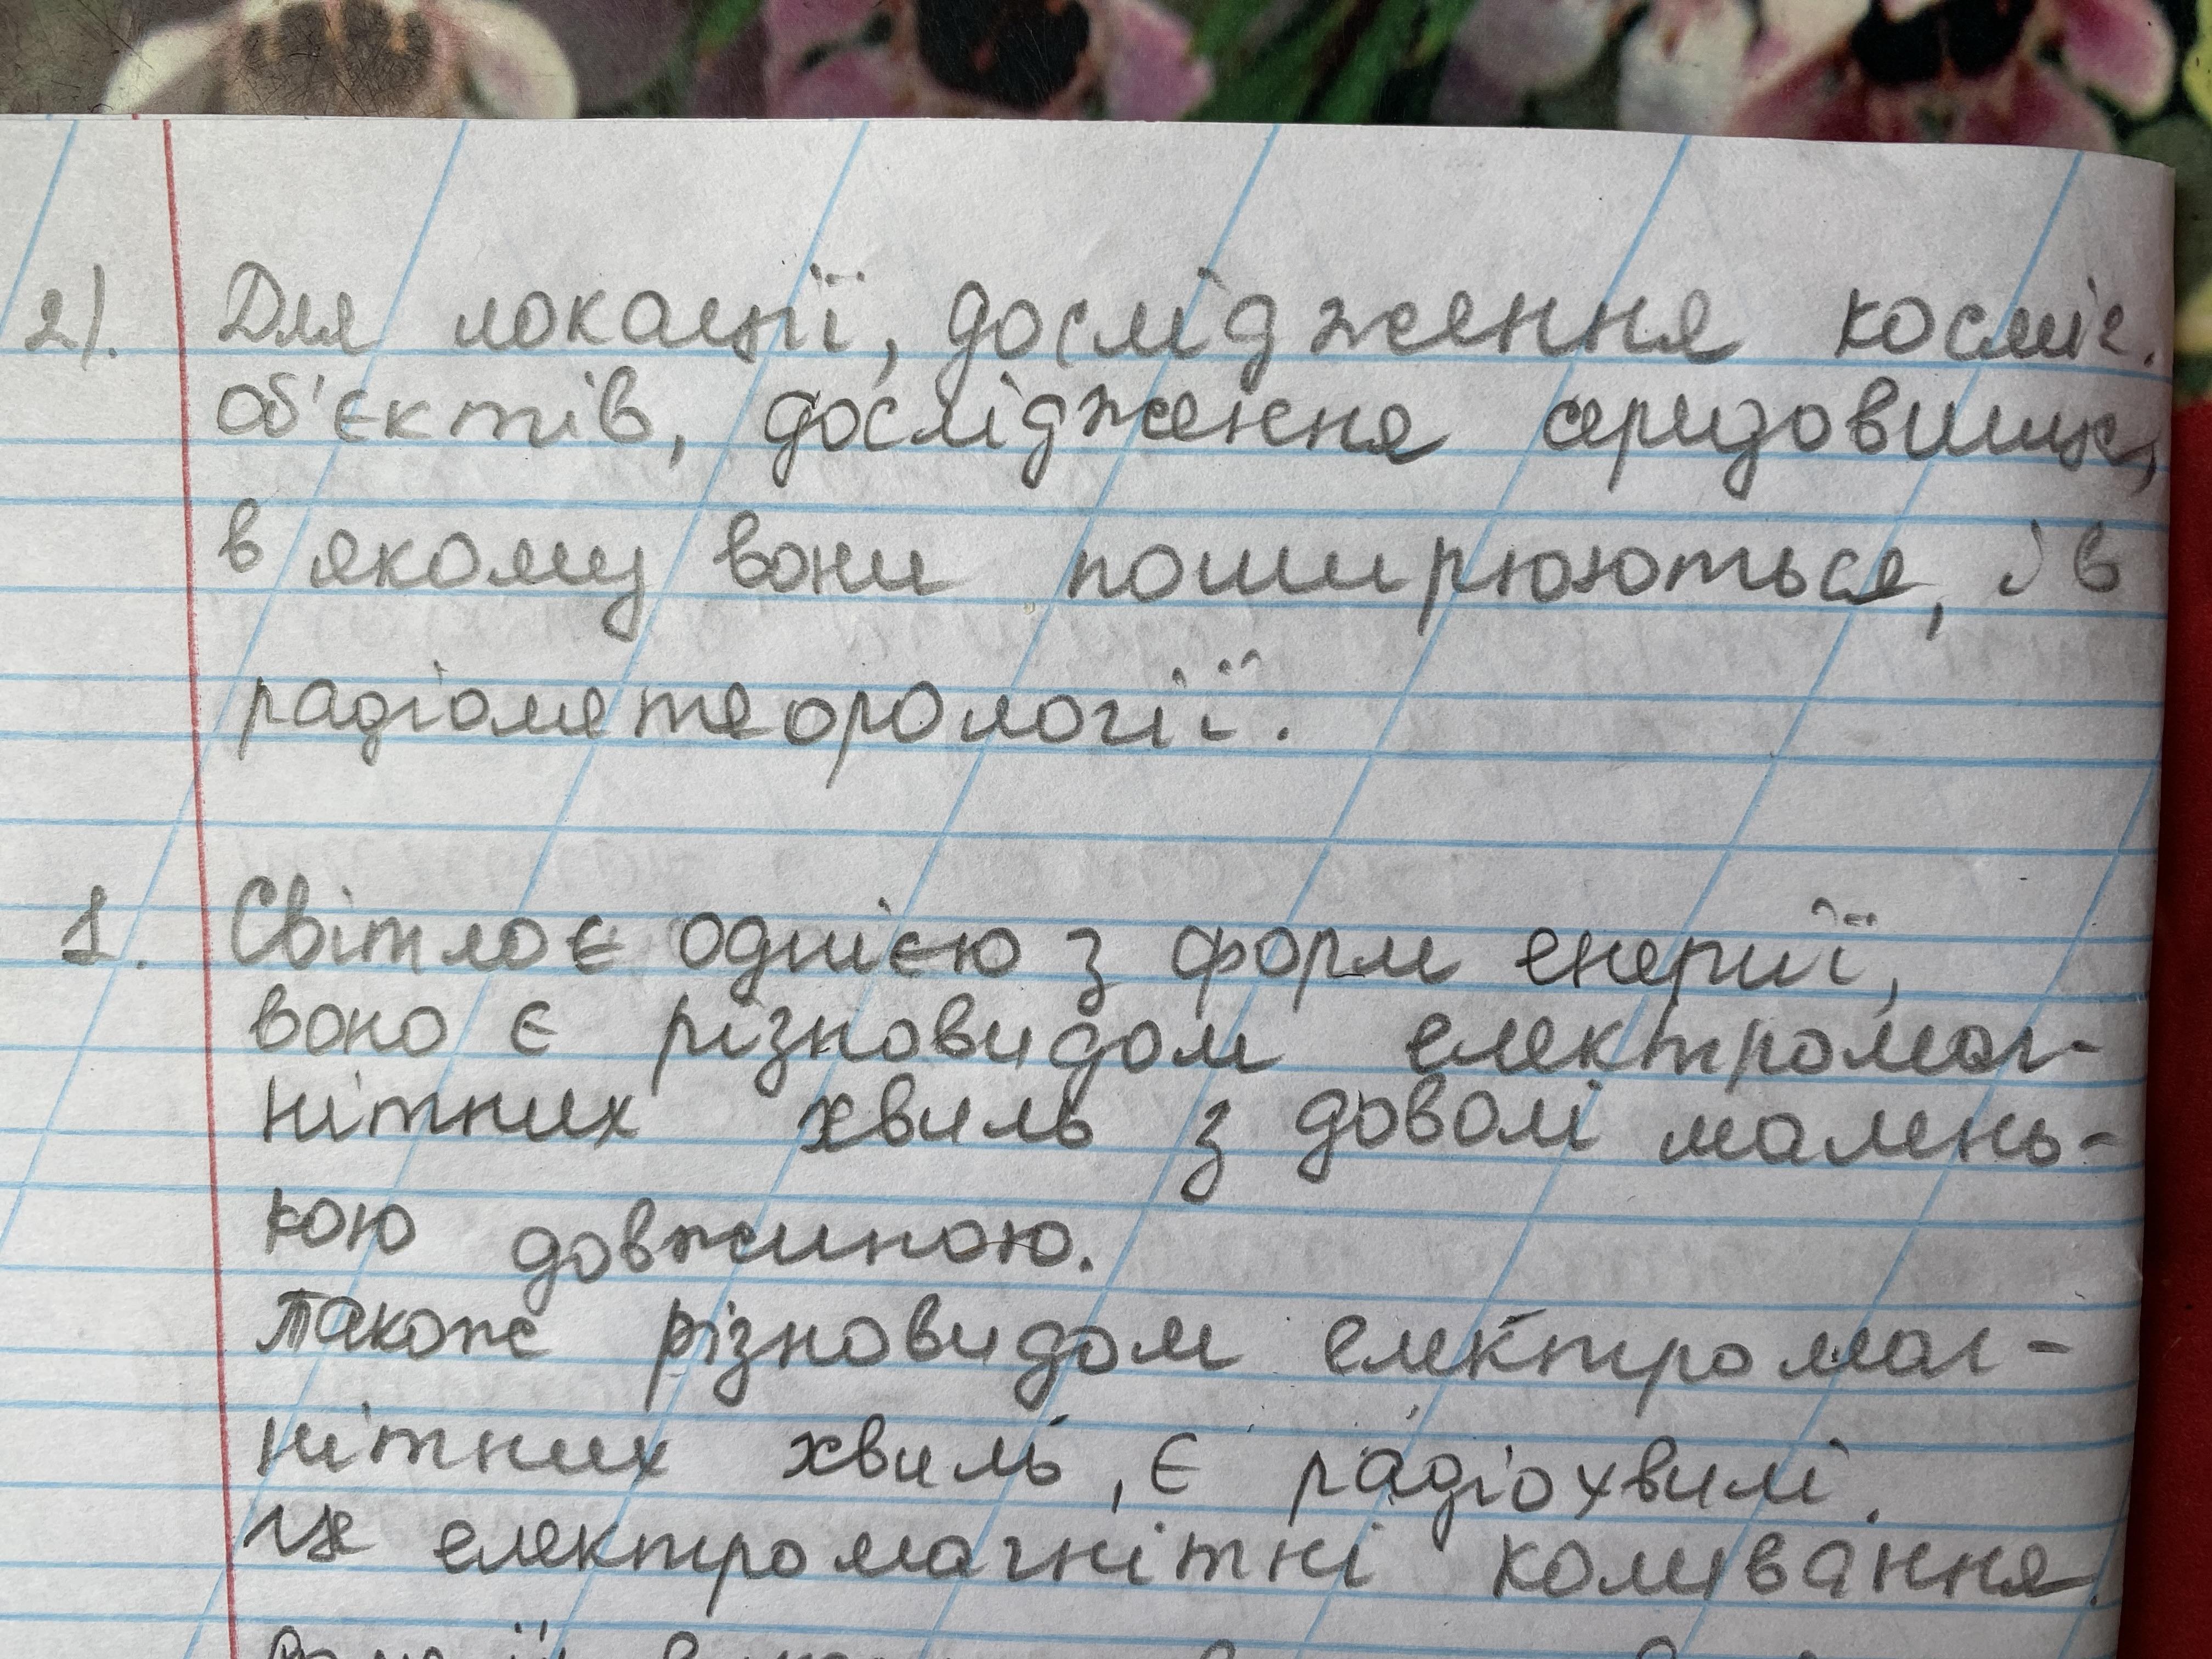 2). Для локації, дослідження косміч.
об'єктів, дослідження середовища,
в якому вони поширюються, і в
радіометеорології.
1. Світло є однією з форм енергії,
воно є різновидом електромаг-
нітних хвиль з доволі малень-
кою довжиною.
Також різновидом електромаг-
нітних хвиль, є радіохвилі.
Це електромагнітні коливання.